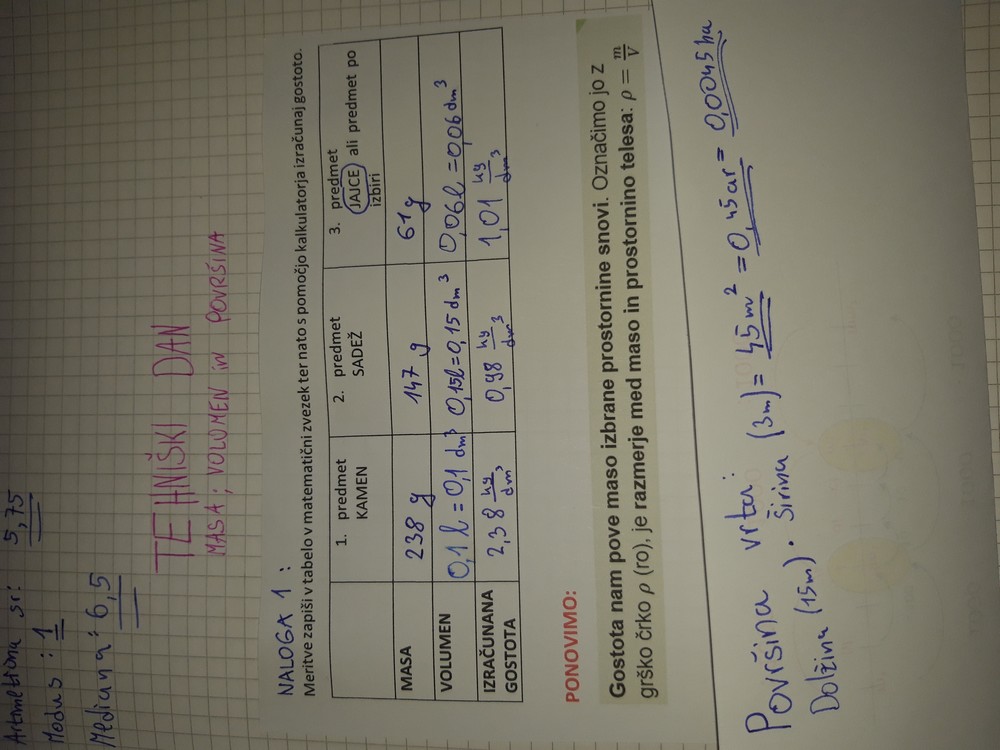 Aritmetična sr: 5,75
Modus: 1
Mediana: 6,5
TEHNIŠKI DAN
MASA; VOLUMEN in POVRŠINA
NALOGA 1:
Meritve zapiši v tabelo v matematični zvezek ter nato s pomočjo kalkulatorja izračunaj gostoto.
1. predmet KAMEN
2. predmet SADEŽ
3. predmet JAJCE ali predmet po izbiri
MASA 238 g 147 g 61 g
VOLUMEN 0,1 l = 0,1 dm³ 0,15l = 0,15 dm³ 0,06l = 0,06 dm³
IZRAČUNANA GOSTOTA 2,38 kg/dm³ 0,98 kg/dm³ 1,01 kg/dm³
PONOVIMO:
Gostota nam pove maso izbrane prostornine snovi. Označimo jo z
grško črko ρ (ro), je razmerje med maso in prostornino telesa: ρ = m/V
Površina vrta:
Dolžina (15m) · Širina (3m) = 45 m² = 0,45 ar = 0,0045 ha